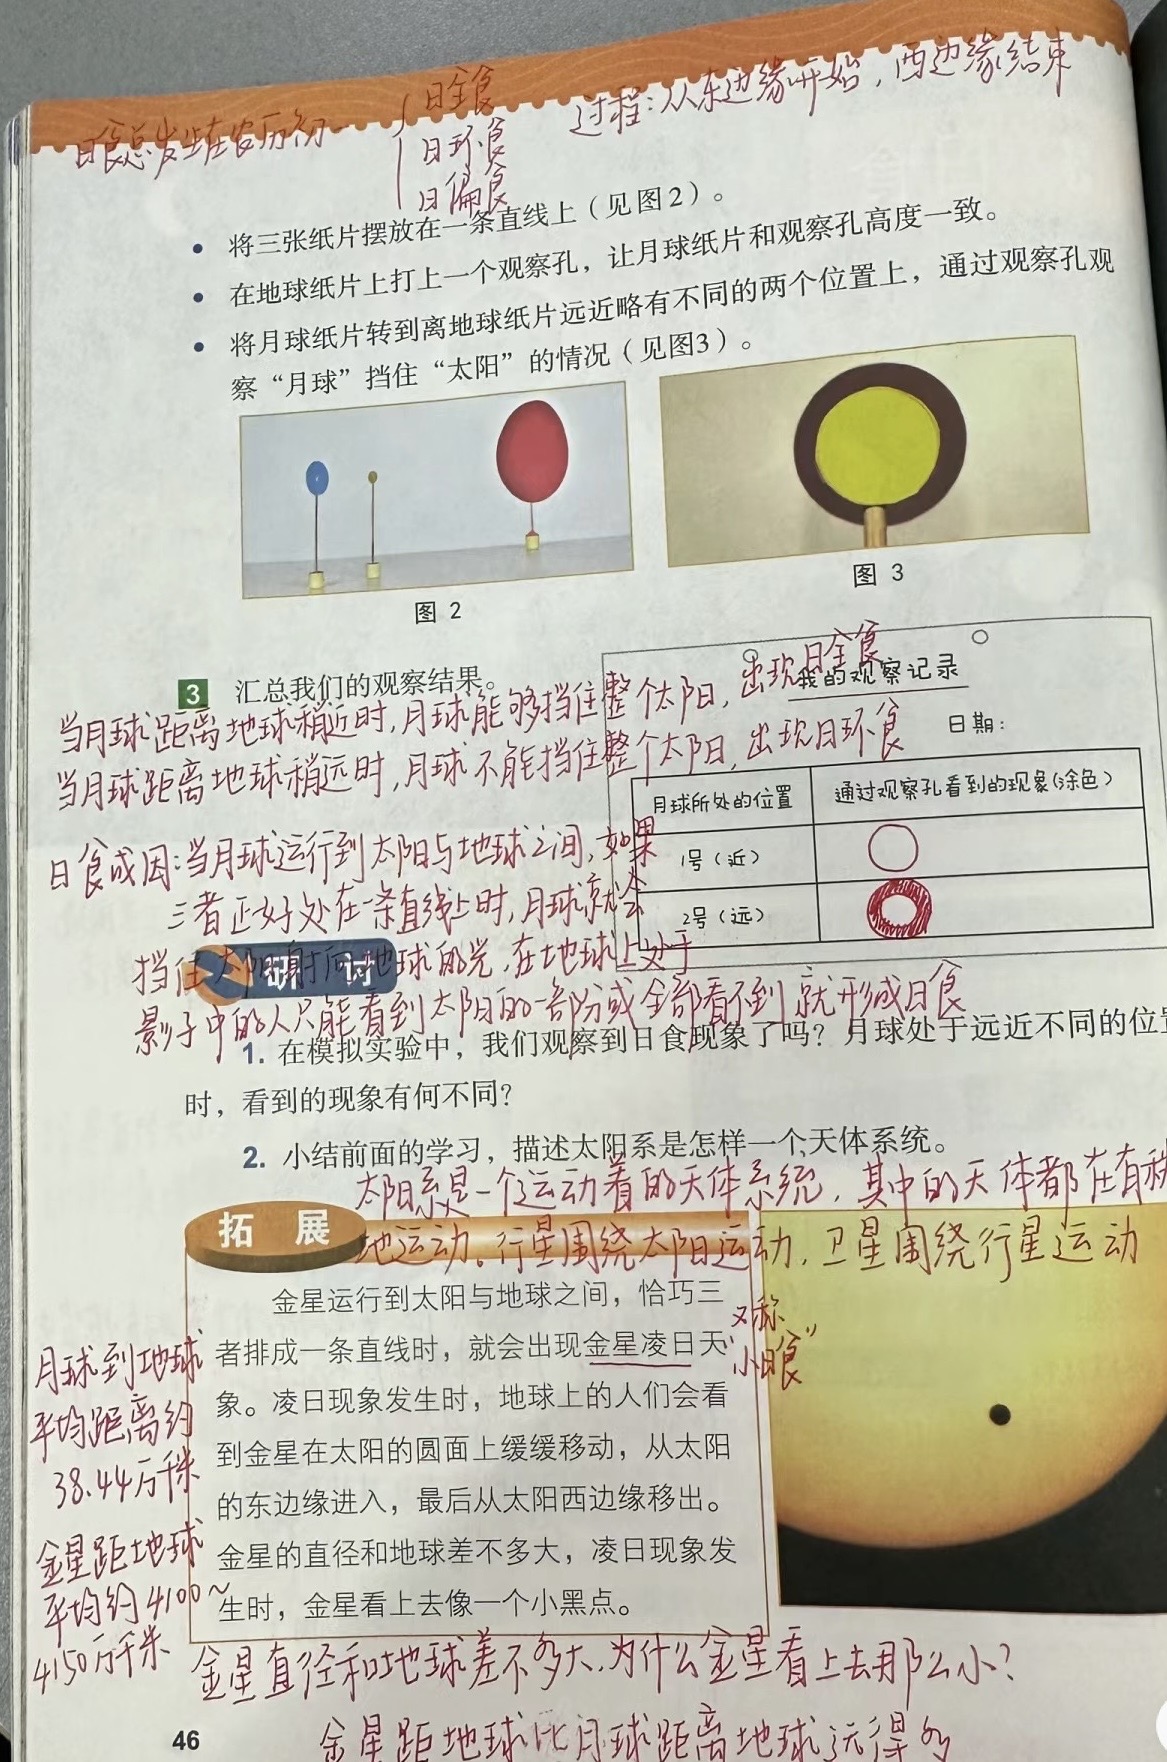 日食总发生在农历初一
日全食
日环食
日偏食
过程:从东边缘开始,西边缘结束
• 将三张纸片摆放在一条直线上（见图2）。
• 在地球纸片上打上一个观察孔，让月球纸片和观察孔高度一致。
• 将月球纸片转到离地球纸片远近略有不同的两个位置上，通过观察孔观
察“月球”挡住“太阳”的情况（见图3）。
图 2
图 3
3 汇总我们的观察结果。
当月球距离地球稍近时,月球能够挡住整个太阳,出现日全食
当月球距离地球稍远时,月球不能挡住整个太阳,出现日环食
我的观察记录
日期:
月球所处的位置 通过观察孔看到的现象(涂色)
1号（近）
2号（远）
日食成因:当月球运行到太阳与地球之间,如果
三者正好处在一条直线上时,月球就会
挡住太阳射向地球的光,在地球上处于
影子中的人只能看到太阳的一部份或全部看不到就形成日食
研 讨
1. 在模拟实验中，我们观察到日食现象了吗？月球处于远近不同的位置
时，看到的现象有何不同？
2. 小结前面的学习，描述太阳系是怎样一个天体系统。
太阳系是一个运动着的天体系统,其中的天体都在有秩
地运动。行星围绕太阳运动,卫星围绕行星运动
拓 展
金星运行到太阳与地球之间，恰巧三
者排成一条直线时，就会出现金星凌日天
象。凌日现象发生时，地球上的人们会看
到金星在太阳的圆面上缓缓移动，从太阳
的东边缘进入，最后从太阳西边缘移出。
金星的直径和地球差不多大，凌日现象发
生时，金星看上去像一个小黑点。
又称
“小日食”
月球到地球
平均距离约
38.44万千米
金星距地球
平均约4100~
4150万千米
金星直径和地球差不多大,为什么金星看上去那么小?
金星距地球比月球距离地球远得多
46